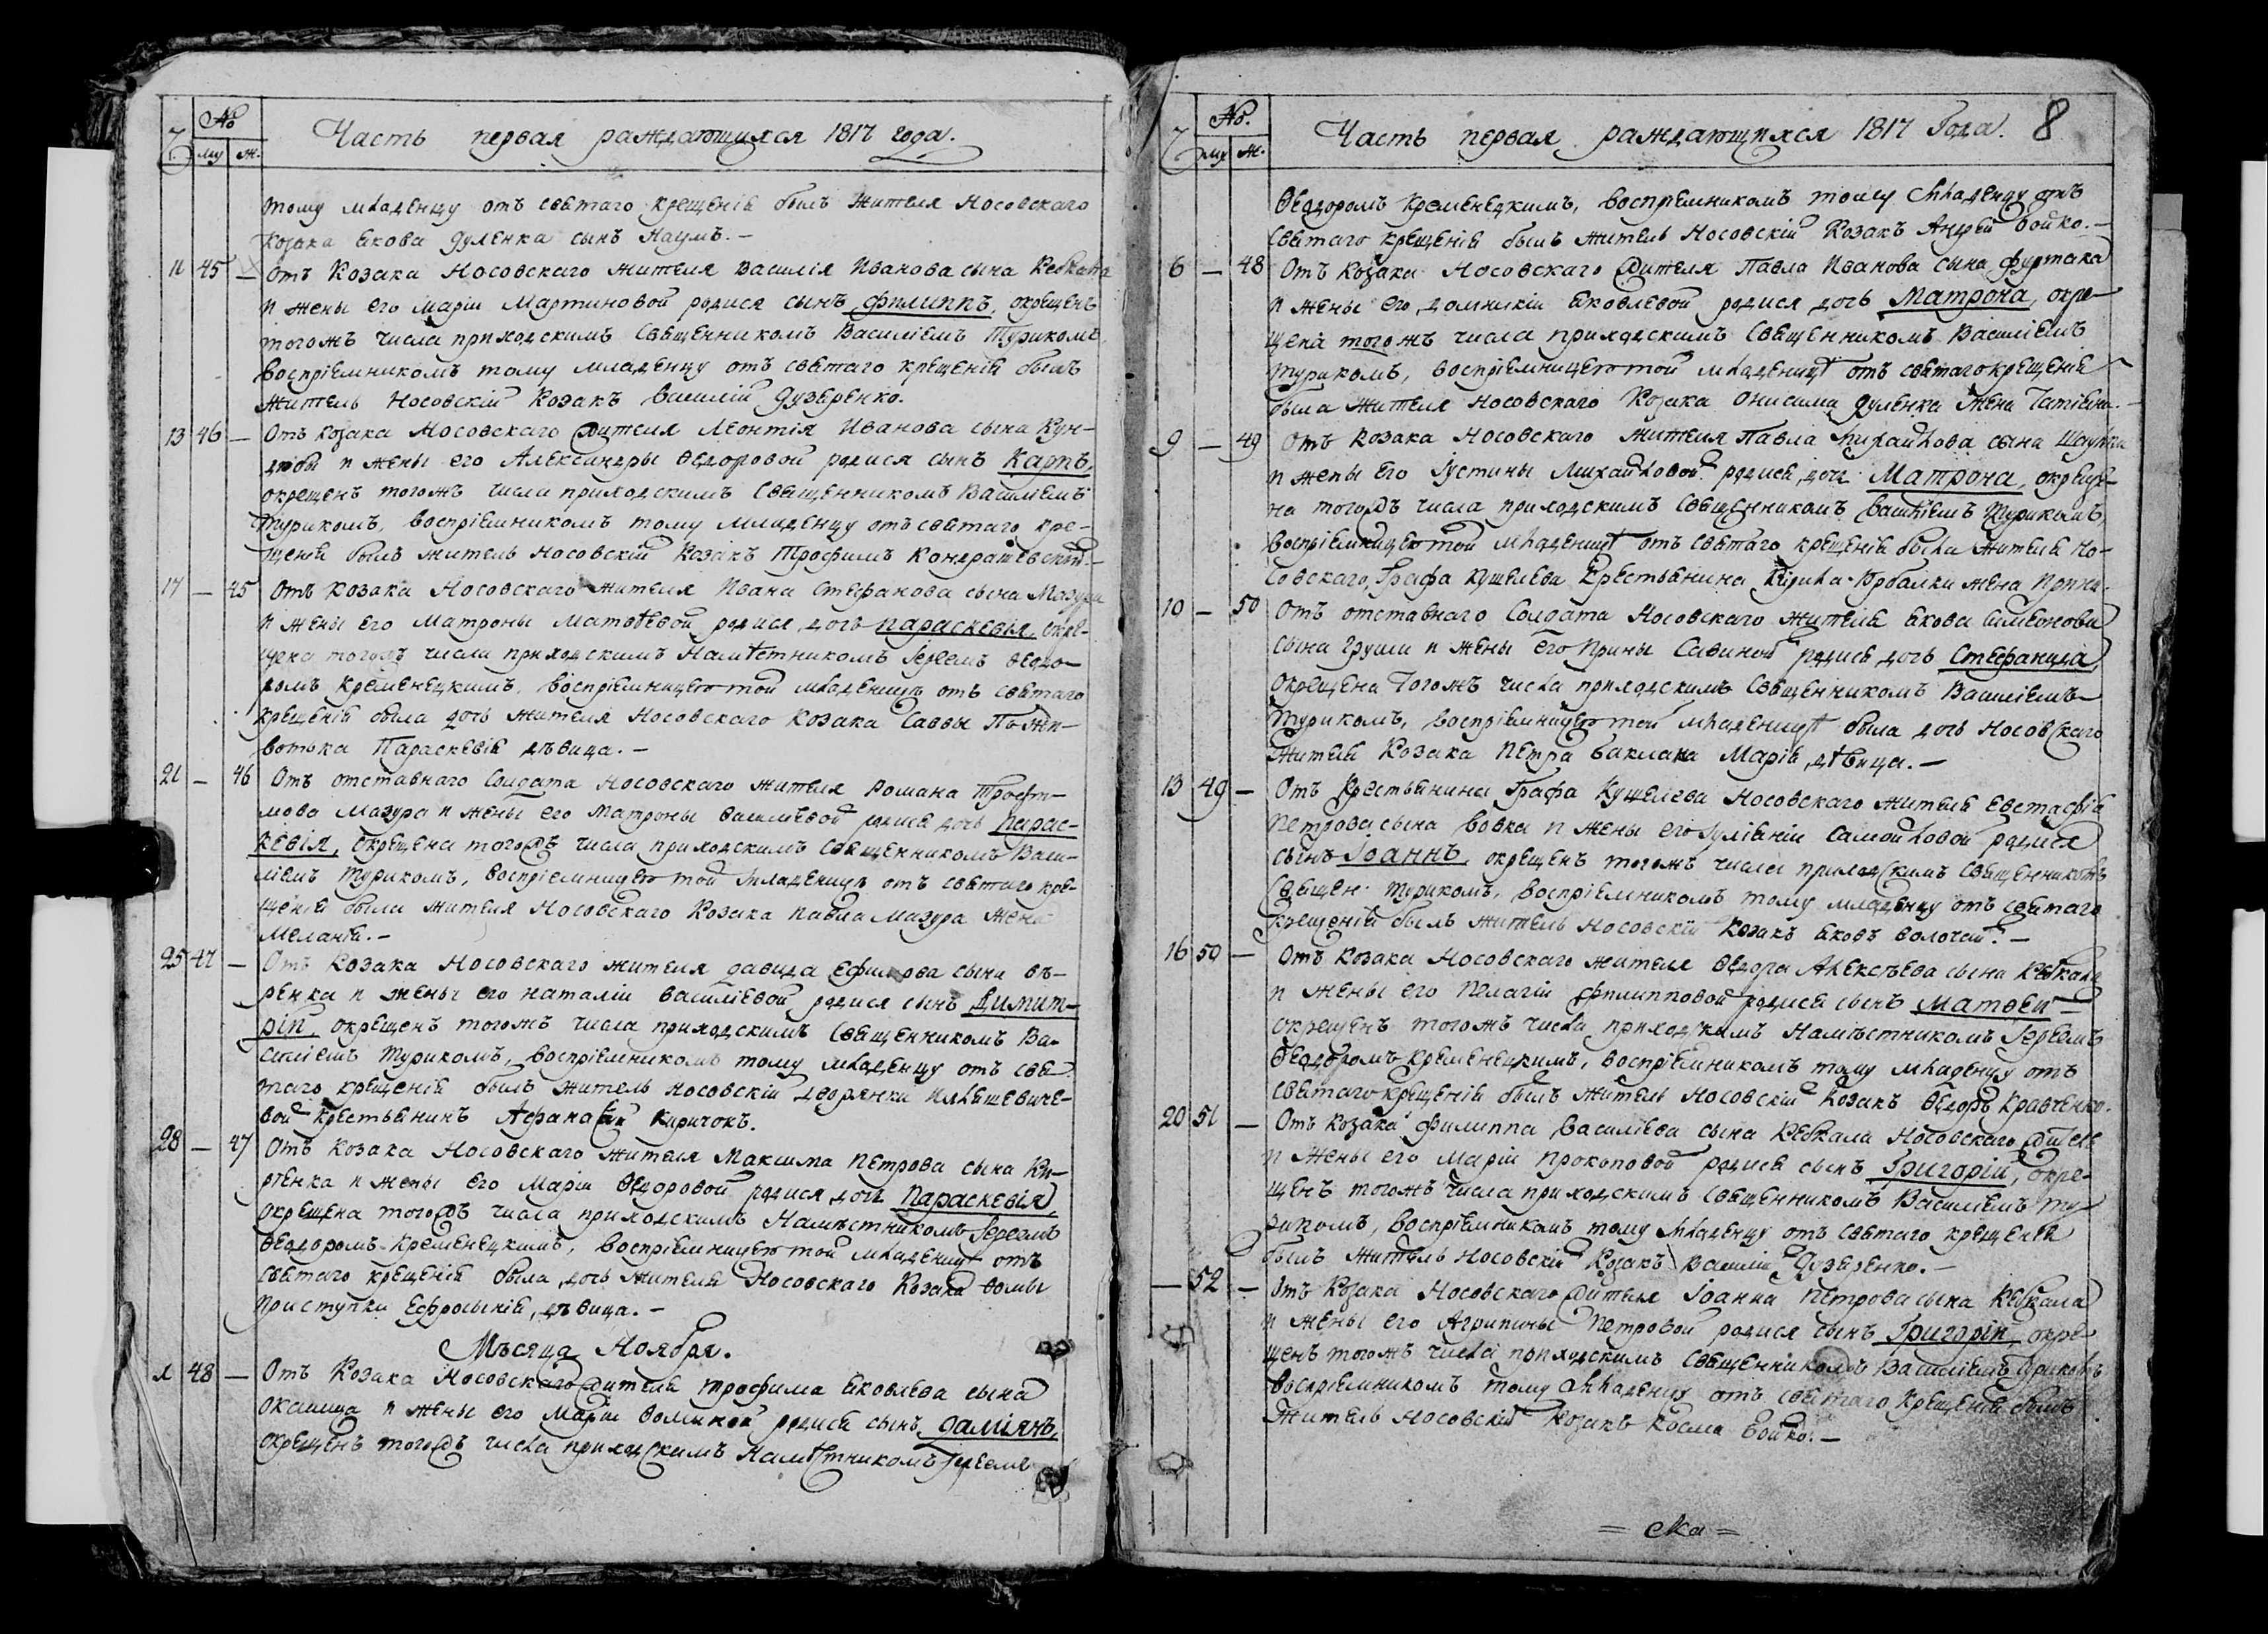 №
Часть первая раждающихся 1817 года.
му ж.
тому младенцу отъ святаго крещенія былъ жителя Носовскаго
Козака Якова Дуленка сынъ Наумъ. –
11 45 – Отъ Козака Носовскаго жителя Василія Иванова сына
и жены его Маріи Мартиновой родися сынъ Филиппъ, окрещенъ
тогожъ числа приходскимъ Священникомъ Василіемъ Турикомъ,
воспріемникомъ тому младенцу отъ святаго крещенія былъ
житель Носовскій Козакъ Василій Дузеренко.
13 46 – Отъ Козака Носовскаго жителя Леонтія Иванова сына Кун-
дюбы и жены его Александры Ѳедоровой родися сынъ Карпъ,
окрещенъ тогожъ числа приходскимъ Священникомъ Василіемъ
Турикомъ, воспріемникомъ тому младенцу отъ святаго кре-
щенія былъ житель Носовскій Козакъ Трофимъ Кондрашевскій. –
17 – 45 Отъ Козака Носовскаго жителя Ивана Стефанова сына Мазура
и жены его Матроны Матвѣевой родися дочь Параскевія, окре-
щена тогожъ числа приходскимъ Намѣстникомъ Іереемъ Ѳеодо-
ромъ Кременецкимъ, воспріемницею той младеницѣ отъ святаго
крещенія была дочь жителя Носовскаго Козака Саввы Пожи-
вотька Параскевія дѣвица. –
21 – 46 Отъ отставнаго Солдата Носовскаго жителя Романа Трофи-
мова Мазура и жены его Матроны Василіевой родися дочь Парас-
кевія, окрещена тогожъ числа приходскимъ Священникомъ Васи-
ліемъ Турикомъ, воспріемницею той младеницѣ отъ святаго кре-
щенія была жителя Носовскаго Козака Павла Мазура жена
Меланія. –
25 47 – Отъ Козака Носовскаго жителя Давида Ефимова сына Вѣ-
ренка и жены его Наталіи Василіевой родися сынъ Димит-
рій, окрещенъ тогожъ числа приходскимъ Священникомъ Ва-
силіемъ Турикомъ, воспріемникомъ тому младенцу отъ свя-
таго крещенія былъ житель Носовскій дворянки Иляшевиче-
вой крестьянинъ Афанасій Киричокъ.
28 – 47 Отъ Козака Носовскаго жителя Максима Петрова сына
и жены его Маріи Ѳедоровой родися дочь Параскевія,
окрещена тогожъ числа приходскимъ Намѣстникомъ Іереемъ
Ѳеодоромъ Кременецкимъ, воспріемницею той младеницѣ отъ
святаго крещенія была дочь жителя Носовскаго Козака Ѳомы
Приступки Ефросынія, дѣвица. –
Мѣсяца Ноября.
1 48 – Отъ Козака Носовскаго жителя Трофима Яковлева сына
и жены его Маріи Ѳоминой родися сынъ Даміянъ,
окрещенъ тогожъ числа приходскимъ Намѣстникомъ Іереемъ
№.
Часть первая раждающихся 1817 Года. 8
му ж.
Ѳеодоромъ Кременецкимъ, воспріемникомъ тому младенцу отъ
святаго крещенія былъ житель Носовскій Козакъ Андрей Бойко. –
6 – 48 Отъ Козака Носовскаго жителя Павла Иванова сына Фуртака
и жены его Домникіи Яковлевой родися дочь Матрона, окре-
щена тогожъ числа приходскимъ Священникомъ Василіемъ
Турикомъ, воспріемницею той младеницѣ отъ святаго крещенія
была жителя Носовскаго Козака Онисима Дуленка жена Татіяна. –
9 – 49 Отъ Козака Носовскаго жителя Павла Михайлова сына
и жены его Іустины Михайловой родися дочь Матрона, окреще-
на тогожъ числа приходскимъ Священникомъ Василіемъ Турикомъ,
воспріемницею той младеницѣ отъ святаго крещенія была жителя Но-
совскаго, Графа Кушелева Крестьянина жена Ирина.
10 – 50 Отъ отставнаго Солдата Носовскаго жителя Якова Симеонова
сына Груши и жены его Ирины Савиной родися дочь Стефанида,
окрещена тогожъ числа приходскимъ Священникомъ Василіемъ
Турикомъ, воспріемницею той младеницѣ была дочь Носовскаго
жителя Козака Петра Баклана Марія, дѣвица. –
13 49 – Отъ Крестьянина Графа Кушелева Носовскаго жителя Евстафія
Петрова сына Вовка и жены его Іуліяніи Самойловой родися
сынъ Іоаннъ, окрещенъ тогожъ числа приходскимъ Священникомъ
Священ. Турикомъ, воспріемникомъ тому младенцу отъ святаго
крещенія былъ житель Носовскій Козакъ Яковъ Волочай. –
16 50 – Отъ Козака Носовскаго жителя Ѳедора Алексѣева сына
и жены его Пелагіи Филипповой родися сынъ Матѳей
окрещенъ тогожъ числа приходскимъ Намѣстникомъ Іереемъ
Ѳеодоромъ Кременецкимъ, воспріемникомъ тому младенцу отъ
святаго крещенія былъ житель Носовскій Козакъ Ѳедоръ Кравченко.
20 51 – Отъ Козака Филиппа Василіева сына Носовскаго жителя
и жены его Маріи Прокоповой родися сынъ Григорій, окре-
щенъ тогожъ числа приходскимъ Священникомъ Василіемъ Ту-
рикомъ, воспріемникомъ тому младенцу отъ святаго крещенія
былъ житель Носовскій Козакъ Василій Дузеренко. –
– 52 – Отъ Козака Носовскаго жителя Іоанна Петрова сына
и жены его Агрипины Петровой родися сынъ Григорій, окре-
щенъ тогожъ числа приходскимъ Священникомъ Василіемъ Турикомъ
воспріемникомъ тому младенцу отъ святаго крещенія былъ
житель Носовскій Козакъ Косма Бойко. –